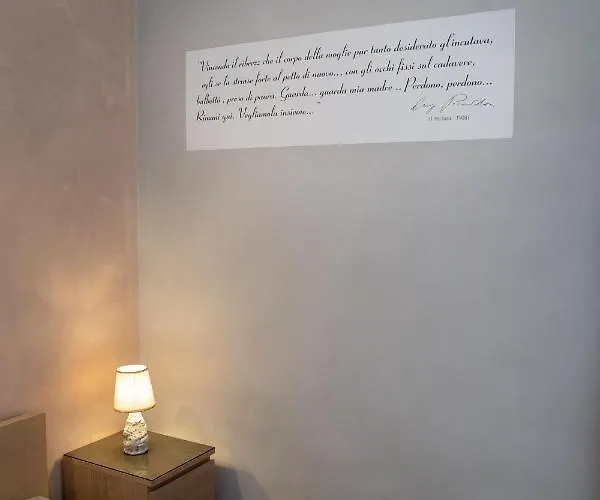 "Vincendo il ribrezz che il corpo della moglie pur tanto desiderato gl'incutava,
egli se la strinse forte al petto di nuovo... con gli occhi fissi sul cadavere,
balbettò, preso di paura. Guarda... guarda mia madre... Perdono, perdono...
Rimani qui, Vegliamola insieme..."